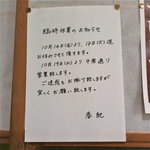 臨時休業のお知らせ
10月16日(金)より、18日(火)迄
お休みさせて頂きます。
10月19日(水)より平常通り
営業致します。
ご迷惑をお掛け致しますが
宜しくお願い致します。
春紀